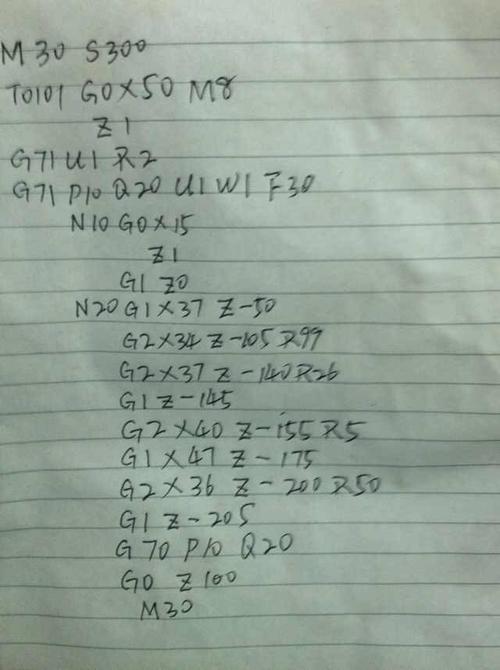 M30 S300
T0101 G0X50 M8
Z1
G71 U1 R2
G71 P10 Q20 U1 W1 F30
N10 G0X15
Z1
G1 Z0
N20 G1X37 Z-50
G2X34 Z-105R99
G2X37 Z-140R26
G1Z-145
G2X40 Z-155R5
G1X47 Z-175
G2X36 Z-200R50
G1Z-205
G70 P10 Q20
G0 Z100
M30